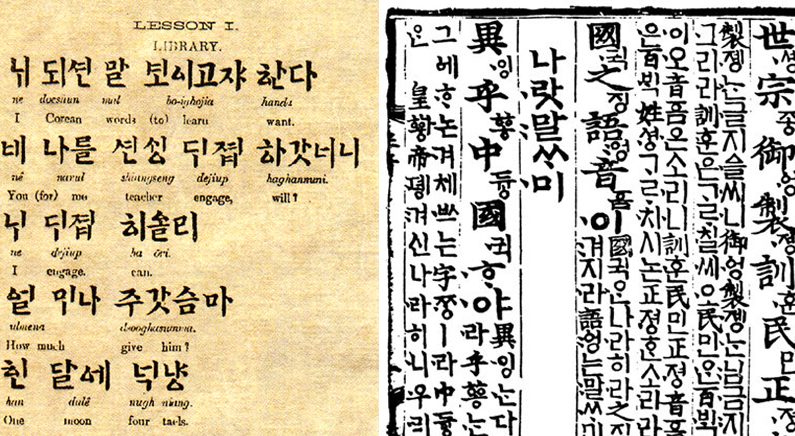 LESSON I.
LIBRARY.
ᄂᆡ 되션 말 보이고쟈 한다
ne doeshun mal bo-ighojia handa
I Corean words (to) learn want.
네 나를 션싱 디졉 하갓너니
nê narul shiungseng dejiup haghannuni.
You (for) me teacher engage, will?
ᄂᆡ 디졉 하올리
ne dejiup ha ōri.
I engage. can.
얼 미나 주갓슴마
ulmena dsooghasumma.
How much give him?
한 달에 넉냥
han dalê nugh niang.
One moon four taels.
世솅宗종御엉製졩訓훈民민正졍
製졩ᄂᆞᆫ글지ᅀᅳᆯ씨니御엉製졩ᄂᆞᆫ님금지
그리라訓훈은ᄀᆞᄅᆞ칠씨오民민ᄋᆞᆫ百ᄇᆡᆨ
이오音ᅙᅳᆷ은소리니訓훈民민正졍音ᅙᅳᆷ
은百ᄇᆡᆨ姓셩ᄀᆞᄅᆞ치시논正졍ᄒᆞᆫ소리라
國귁之징語엉音ᅙᅳᆷ이國귁ᄋᆞᆫ나라히라之징
겨지라語엉는말ᄊᆞ미
나랏말ᄊᆞ미
異잉乎ᅘᅩᆼ中듕國귁ᄒᆞ야異잉ᄂᆞᆫ다
라乎ᅘᅩᆼᄂᆞᆫ
그ᅌᅦᄒᆞ논겨체ᄡᅳ는字ᄍᆞᆼㅣ라中듕
ᄋᆞᆫ皇ᅘᅪᆼ帝뎽겨신나라히니우리